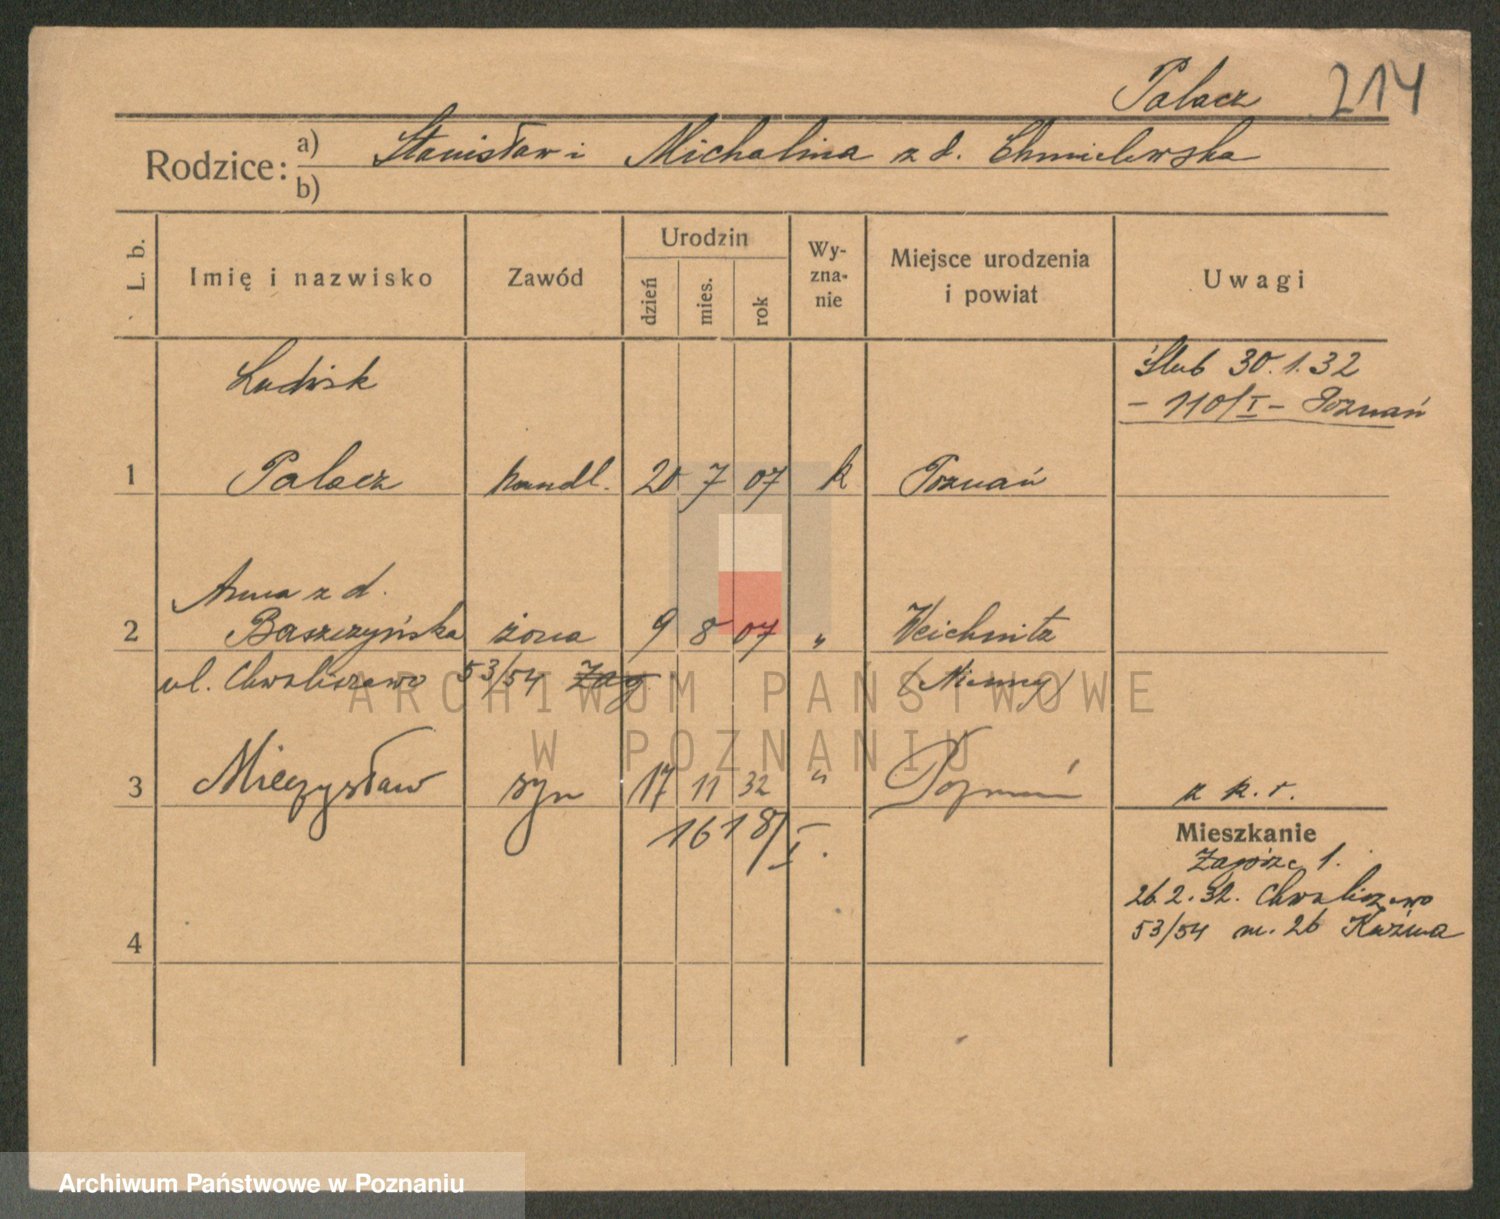 Palacz 214
Rodzice: a) Stanisław i Michalina z d. Chmielewska
b)
L. b. Imię i nazwisko Zawód Urodzin dzień mies. rok Wy-zna-nie Miejsce urodzenia i powiat Uwagi
Ludwik
Ślub 30.1.32
- 110/I - Poznań
1 Palacz handl. 20 7 07 k Poznań
Anna z d.
2 Baszczyńska żona 9 8 07 " Weichnitz
ul. Chwaliszewo 53/54 Zag (Niemcy)
3 Mieczysław syn 17 11 32 " Poznań z k. r.
1618/I.
Mieszkanie
Zagórze 1.
26.2.32. Chwaliszewo
53/54 m. 26
4
ARCHIWUM PAŃSTWOWE
W POZNANIU
Archiwum Państwowe w Poznaniu